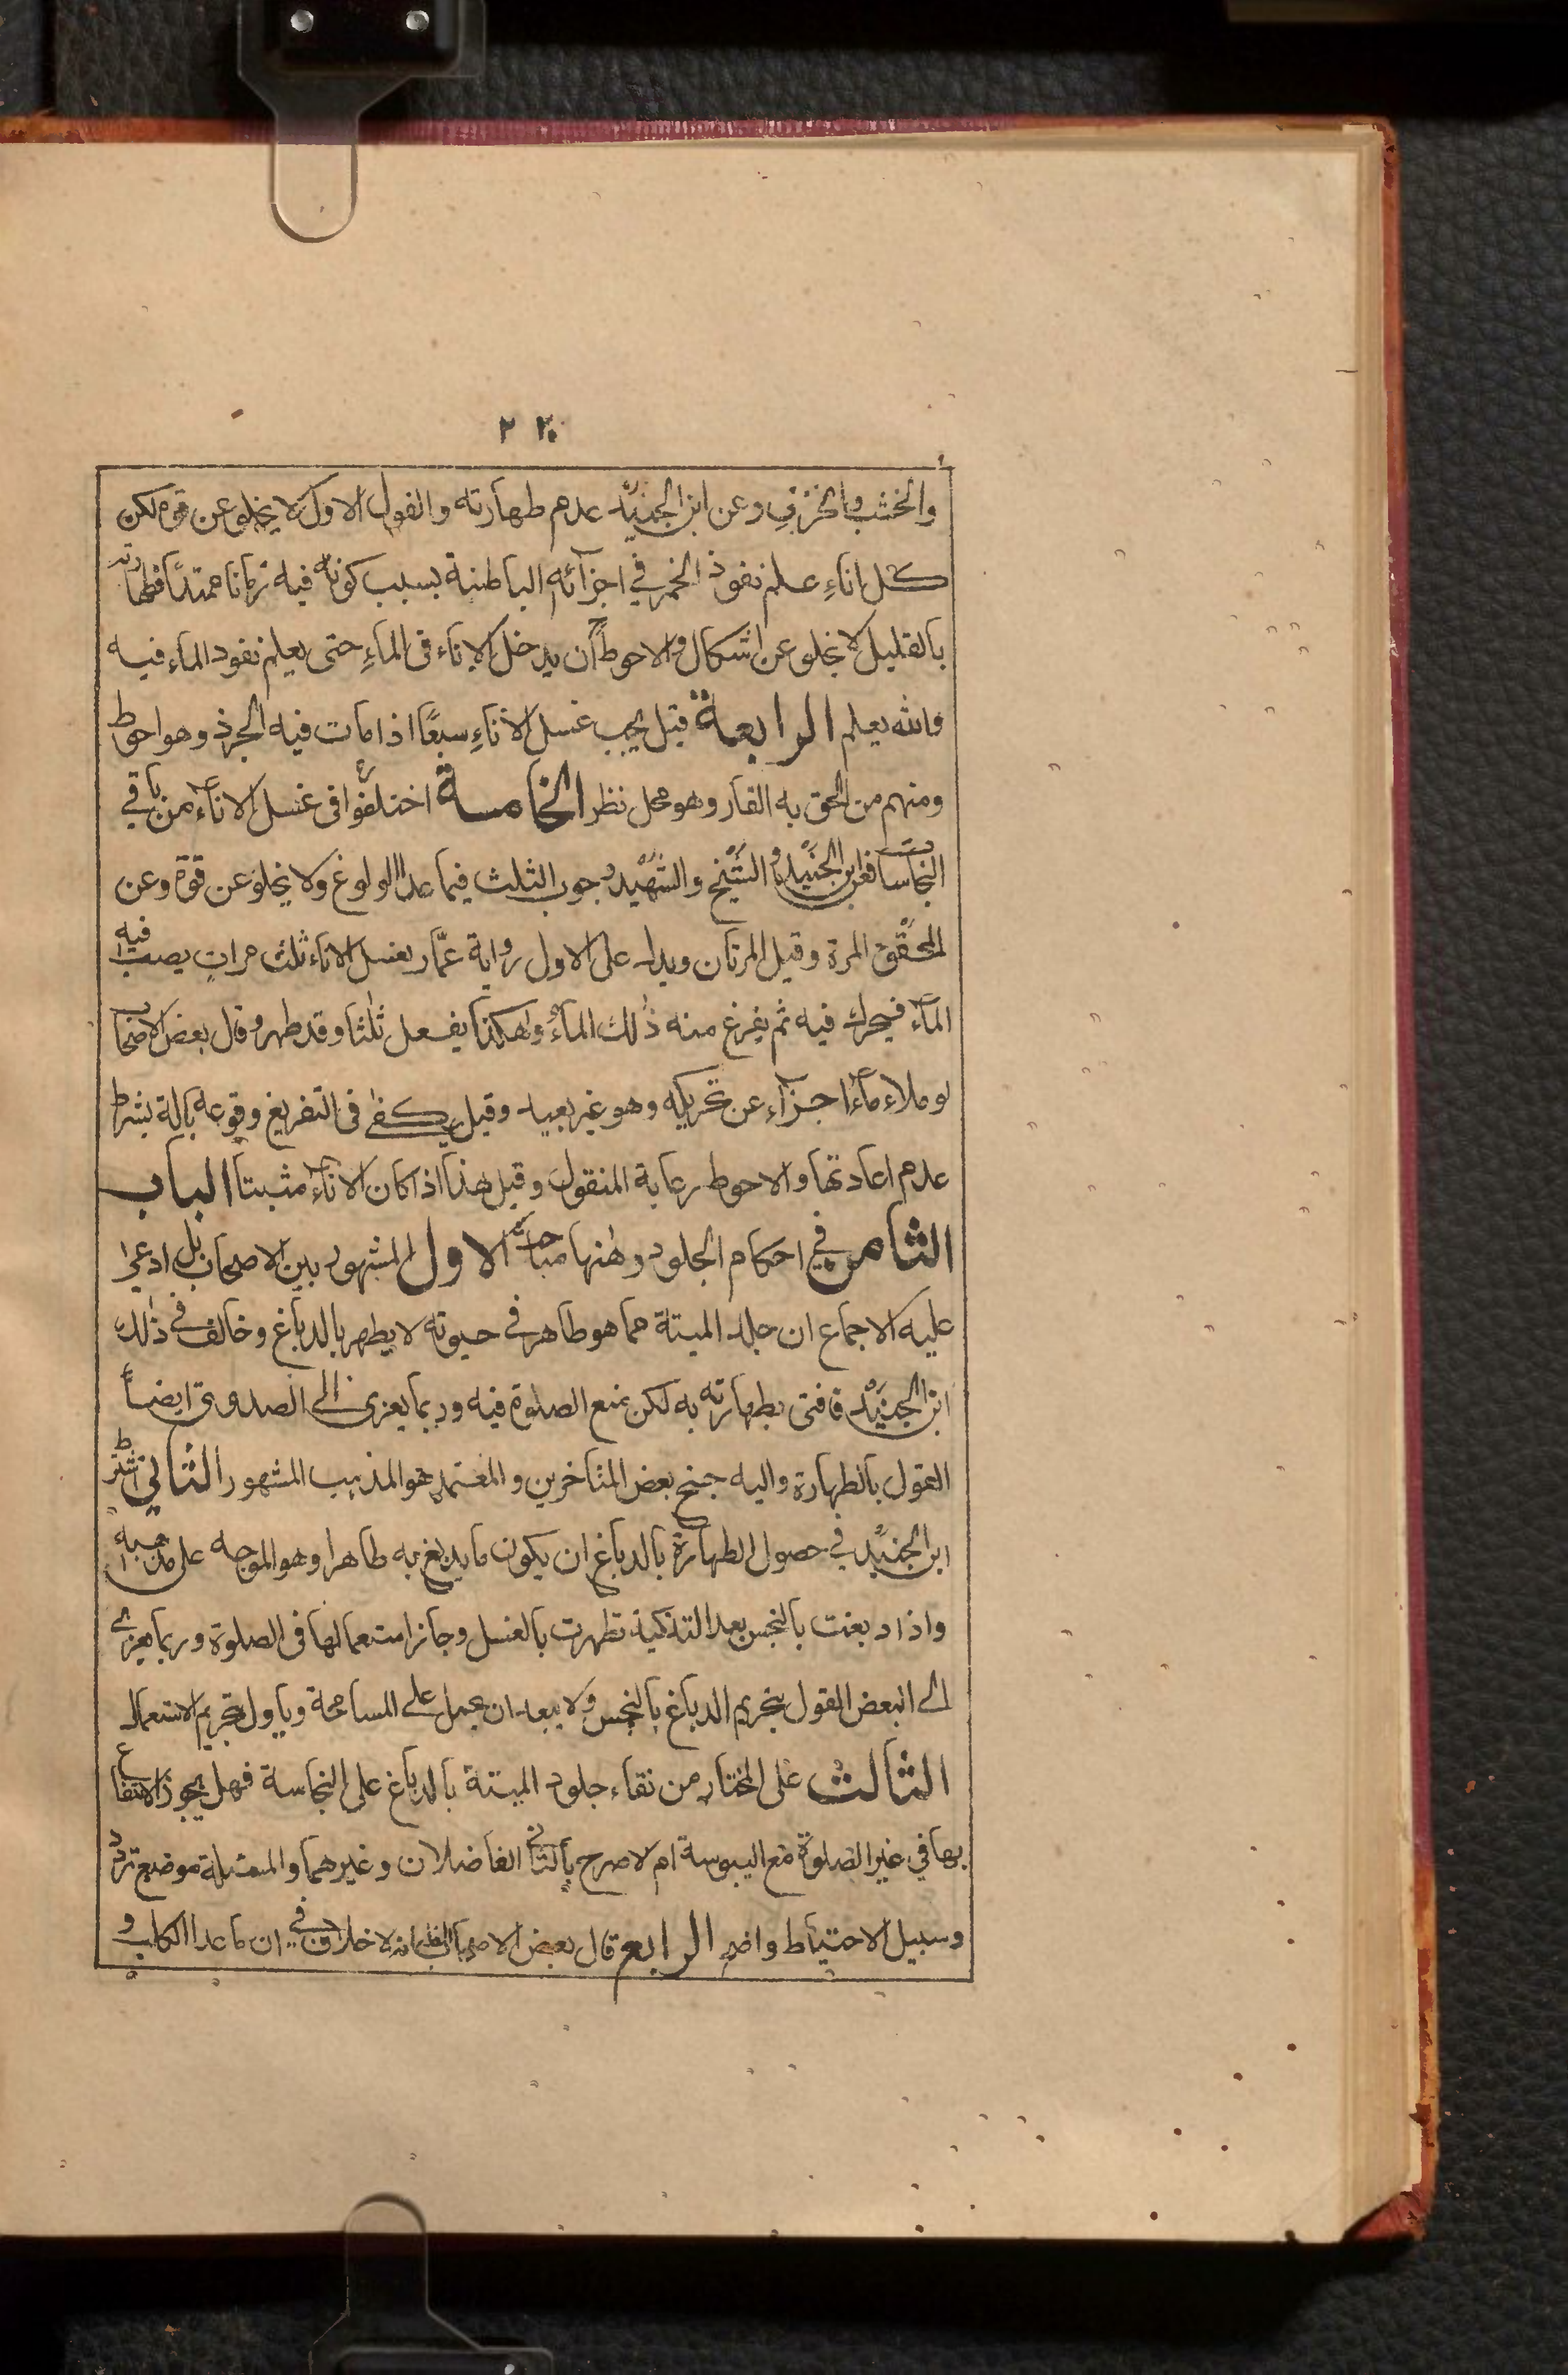 ٢٢٠
والخشب والخزف وعن ابن الجنيد عدم طهارته والقول الاول لا يخلو عن قوة لكن
كل اناءٍ علم نفوذ الخمر في اجزآئه الباطنة بسبب كونه فيه زمانا ممتدًا فطهارته
بالقليل لا يخلو عن اشكال والاحوط ان يدخل الاناء فى الماءِ حتى يعلم نفود الماء فيه
والله يعلم الرابعة قيل يجب غسل الاناءِ سبعًا اذا مات فيه الجرذ وهو احوط
ومنهم من الحق به الفار وهو محل نظر الخامسة اختلفوا فى غسل الاناء من باقي
النجاسات فعن ابن الجنيد والشيخ والشهيد وجوب الثلث فيما عدا الولوغ ولا يخلو عن قوة وعن
المحقق المرة وقيل المرتان ويدل على الاول رواية عمّار يغسل الاناء ثلث مراتٍ يصب فيه
المآء فيحرك فيه ثم يفرغ منه ذلك المآء وهكذا يفعل ثلثا وقد طهر وقال بعض الاصحاب
لو ملاء مآءً اجزآء عن تحريكه وهو غير بعيد وقيل يكفى فى التفريغ وقوعه بآلة بشرط
عدم اعادتها والاحوط رعاية المنقول وقيل هذا اذا كان الاناء مثبتا الباب
الثامن في احكام الجلود وهنها مباحث الاول المشهور بين الاصحاب بل ادعوا
عليه الاجماع ان جلد الميتة مما هو طاهر في حيوته لا يطهر بالدباغ وخالف في ذلك
ابن الجنيد فافتى بطهارته به لكن منع الصلوة فيه وربما يعزى الى الصدوق ايضاً
القول بالطهارة واليه جنح بعض المتاخرين والمعتمد هو المذهب المشهور الثاني اشترط
ابن الجنيد في حصول الطهارة بالدباغ ان يكون ما يدبغ به طاهرا وهو الموجه على مذهبه
واذا دبغت بالنجس بعد التذكية تطهرت بالغسل وجاز استعمالها فى الصلوة وربما يعزى
الى البعض القول بتحريم الدباغ بالنجس ولا يبعد ان يحمل على المسامحة وياول بتحريم الاستعمال
الثالث على المختار من بقاء جلود الميتة بالدباغ على النجاسة فهل يجوز الانتفاع
بها في غير الصلوة مع اليبوسة ام لا صرح بالثانى الفاضلان وغيرهما والمسئلة موضع تردد
وسبيل الاحتياط واضح الرابع قال بعض الاصحاب انه لا خلاف في ان ما عدا الكلب و